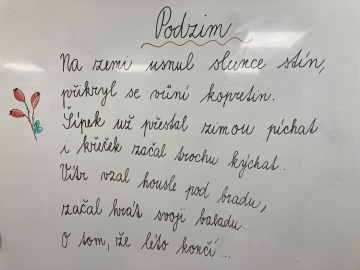 Podzim
Na zemi usnul slunce stín,
přikryl se vůní kopretin.
Šípek už přestal zimou píchat
i křeček začal trochu kýchat.
Vítr vzal housle pod bradu,
začal hrát svoji baladu.
O tom, že léto končí...